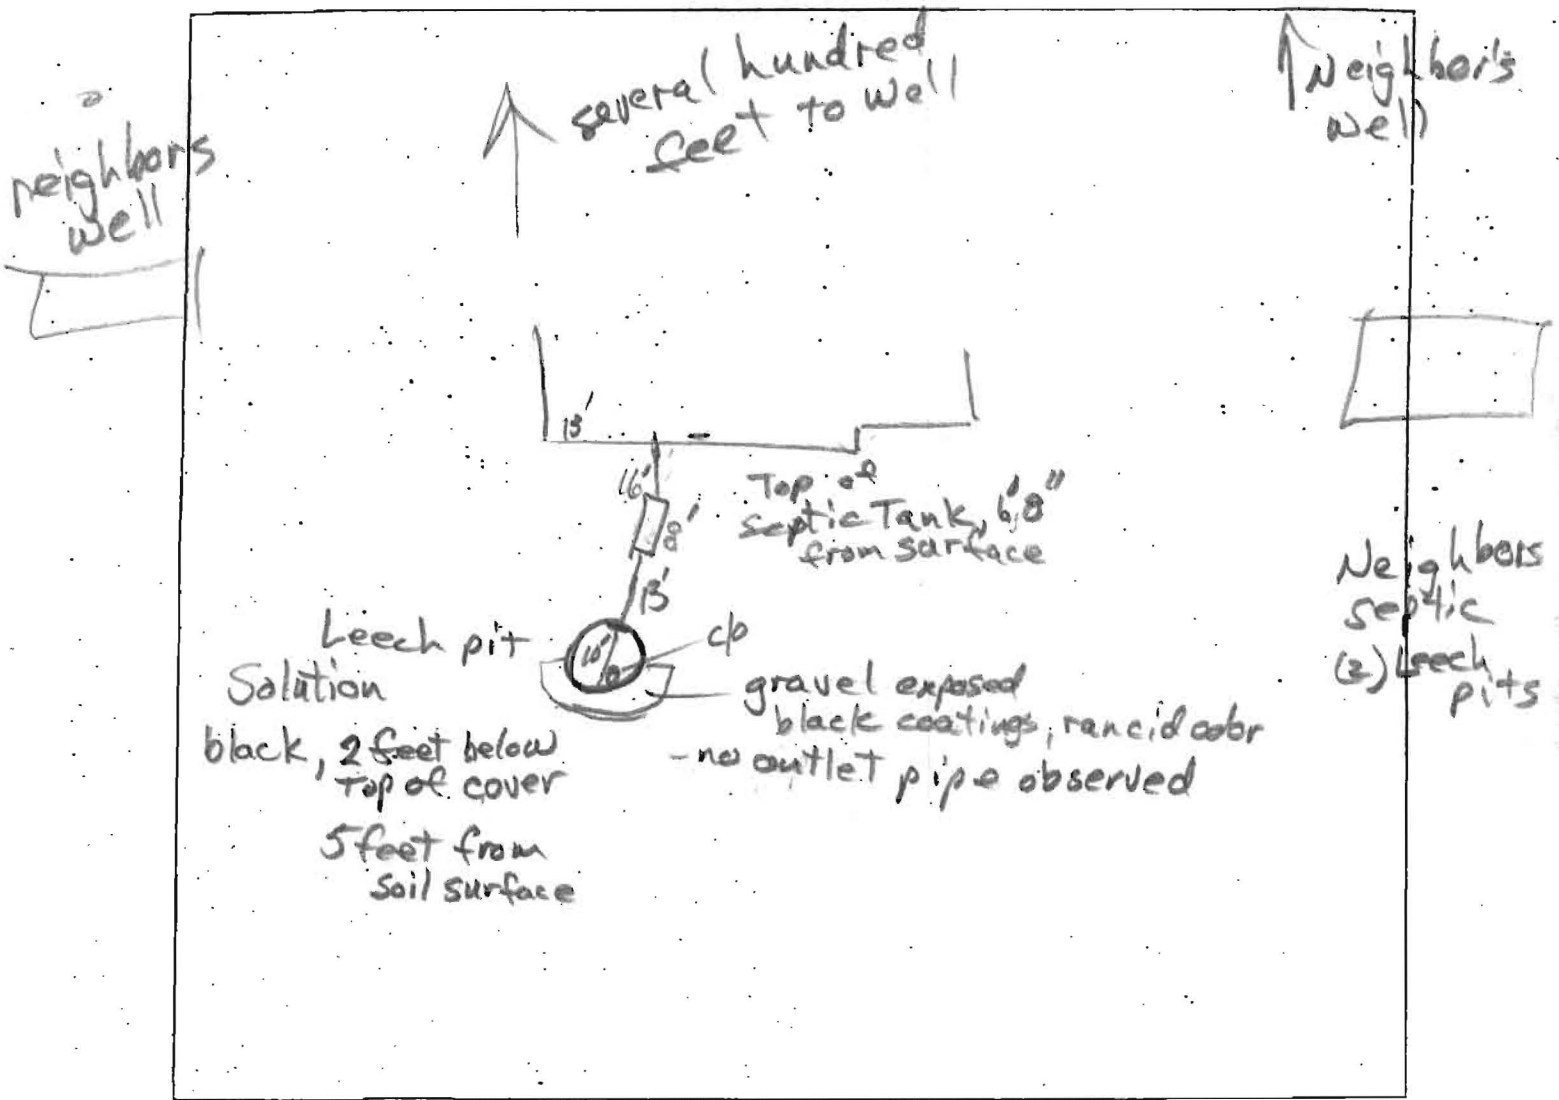 several hundred
feet to well
Neighbor's
well
neighbors
well
13'
16'
8'
Top of
septic Tank, 6'8"
from surface
13'
Leech pit
10'
c/o
Solution
black, 2 feet below
top of cover
5 feet from
soil surface
gravel exposed
black coatings, rancid odor
-no outlet pipe observed
Neighbors
septic
(2) Leech
pits